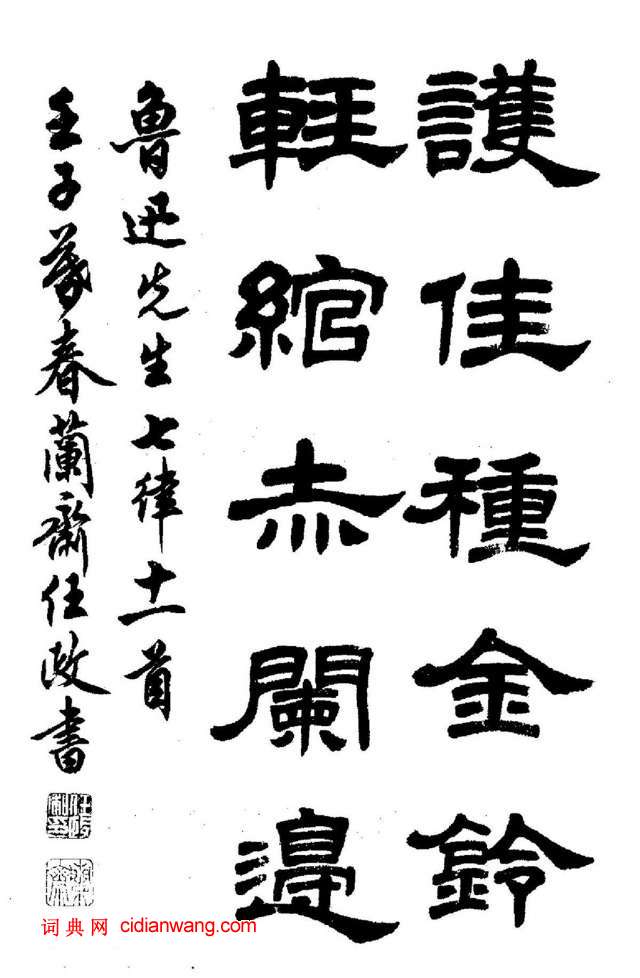 護佳種金鈴
輕綰赤闌邊
魯迅先生七律十一首
壬子暮春蘭齋任政書
词典网 cidianwang.com